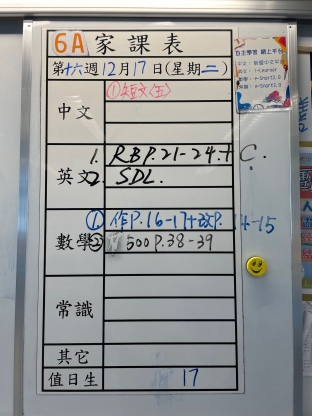 6A 家課表
第十六週12月17日(星期二)
中文
①短文〈五〉
英文
1. RB P.21-24.+ C.
2. SDL.
數學
① 作P.16-17+改P.14-15
② 500 P.38-39
常識
其它
值日生 17
自主學習 網上平台